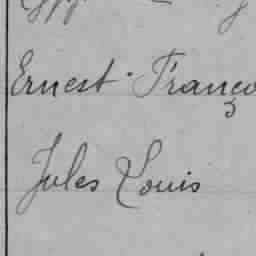 Ernest Franço
Jules Louis